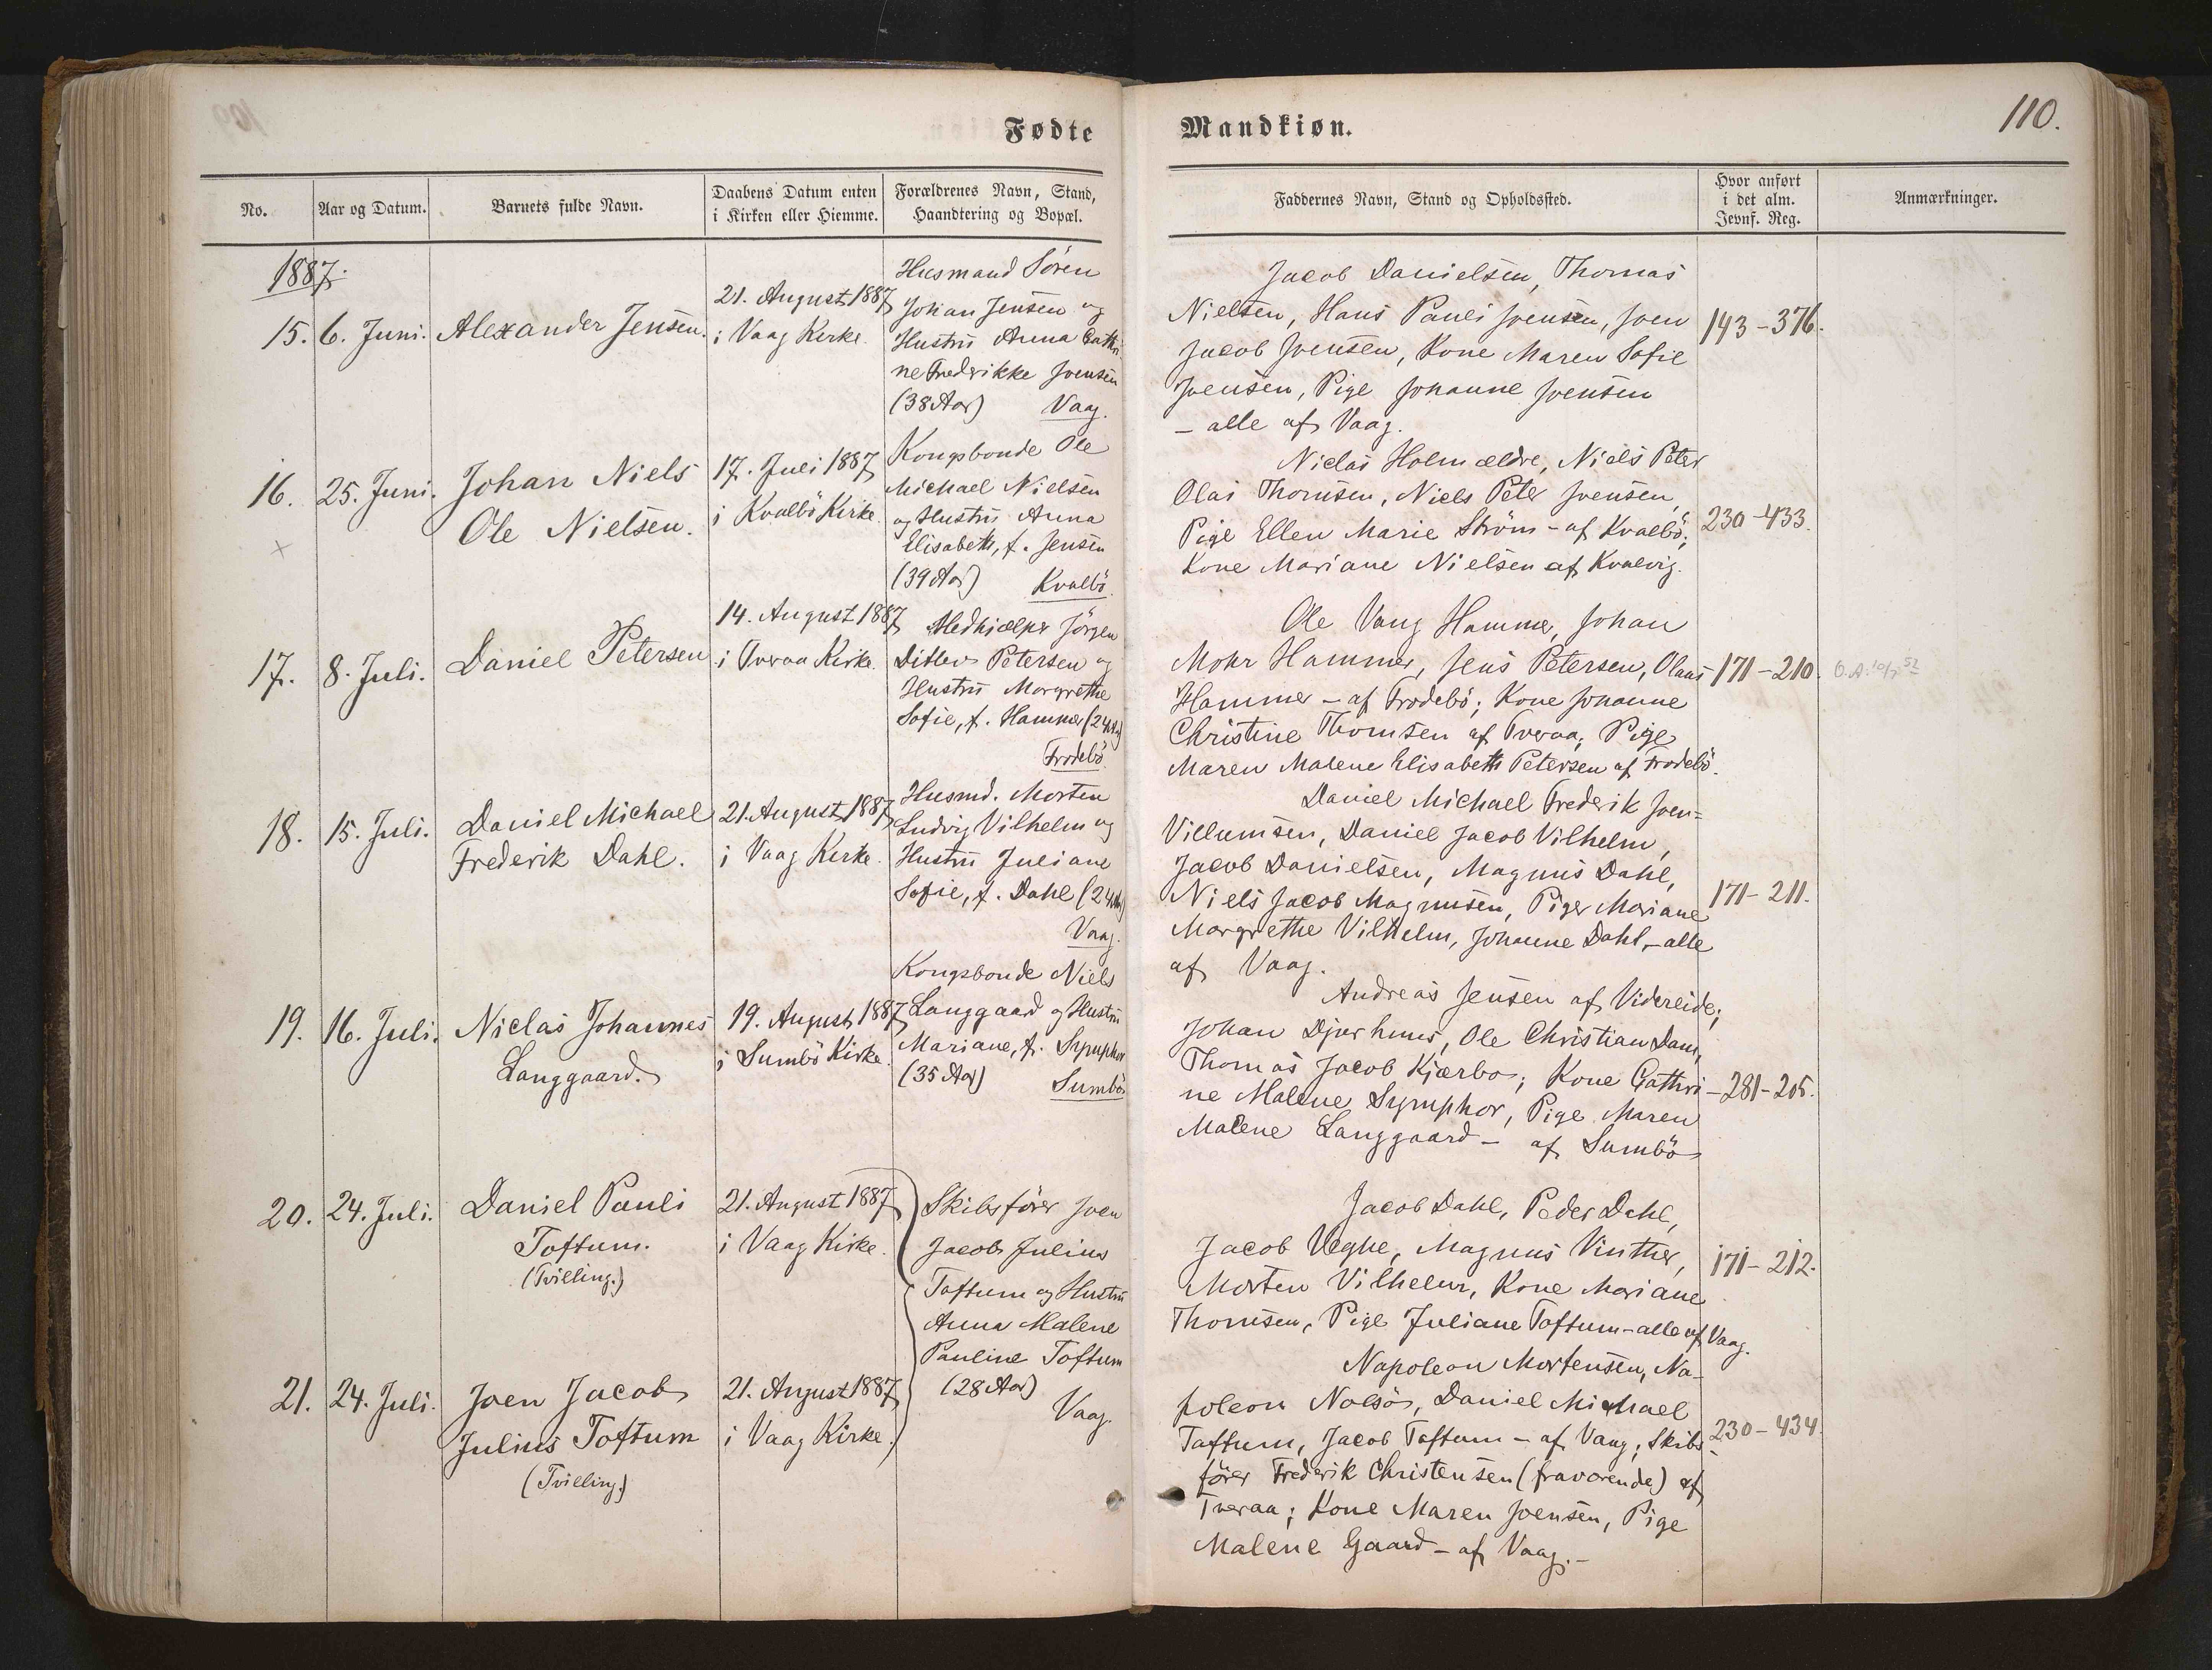 Fødte
No.
Aar og Datum.
Barnets fulde Navn.
Daabens Datum enten
i Kirken eller Hiemme.
Forældrenes Navn, Stand,
Haandtering og Bopæl.
1887.
15.
6. Juni.
Alexander Jensen.
21. August 1887
i Vaag Kirke.
Husmand Sören
Johan Jensen og
Hustru Anna Cathri-
ne Fredrikke Joensen
(38 Aar) Vaag.
16.
25. Juni.
Johan Niels
Ole Nielsen.
17. Juli 1887
i Kvalbö Kirke.
Kongsbonde Ole
Michael Nielsen
og Hustru Anna
Elisabeth, f. Jensen
(39 Aar) Kvalbö.
17.
8. Juli.
Daniel Petersen
14. August 1887
i Tveraa Kirke.
Medhjælper Jörgen
Ditlev Petersen og
Hustru Margrethe
Sofie, f. Hammer (24 Aar)
Frodebö.
18.
15. Juli.
Daniel Michael
Frederik Dahl.
21. August 1887
i Vaag Kirke.
Husmd. Morten
Ludvig Vilhelm og
Hustru Juliane
Sofie, f. Dahl (24 Aar)
Vaag.
19.
16. Juli.
Niclas Johannes
Langgaard.
19. August 1887
i Sumbö Kirke.
Kongsbonde Niels
Langgaard og Hustru
Mariane, f. Symphor
(35 Aar) Sumbö.
20.
24. Juli.
Daniel Pauli
Toftum.
(Tvilling.)
21. August 1887
i Vaag Kirke.
Skibsförer Joen
Jacob Julius
Toftum og Hustru
Anna Malene
Pauline Toftum
(28 Aar)
Vaag.
21.
24. Juli.
Joen Jacob
Julius Toftum
(Tvilling.)
21. August 1887
i Vaag Kirke.
Mandkiøn.
110.
Faddernes Navn, Stand og Opholdssted.
Hvor anført
i det alm.
Jevnf. Reg.
Anmærkninger.
Jacob Danielsen, Thomas
Nielsen, Hans Pauli Joensen, Joen
Jacob Joensen, Kone Maren Sofie
Joensen, Pige Johanne Joensen
- alle af Vaag.
143-376.
Niclas Holm ældre, Niels Peter
Olai Thomsen, Niels Peter Joensen,
Pige Ellen Marie Ström - af Kvalbö;
Kone Mariane Nielsen af Kvalvig.
230-433.
Ole Vang Hammer, Johan
Mohr Hammer, Jens Petersen, Olaus
Hammer - af Frodebö; Kone Johanne
Christine Thomsen af Tveraa; Pige
Maren Malene Elisabeth Petersen af Frodebö.
171-210.
Daniel Michael Frederik Joen-
Villumsen, Daniel Jacob Vilhelm,
Jacob Danielsen, Magnus Dahl,
Niels Jacob Magnusen, Piger Mariane
Margrethe Vilhelm, Johanne Dahl, - alle
af Vaag.
171-211.
Andreas Jensen af Videreide;
Johan Djurhuus, Ole Christian Dam,
Thomas Jacob Kjærbo; Kone Cathri-
ne Malene Symphor, Pige Maren
Malene Langgaard - af Sumbö
281-205.
Jacob Dahl, Peder Dahl,
Jacob Veghe, Magnus Vinther,
Morten Vilhelm, Kone Mariane
Thomsen, Pige Juliane Toftum - alle af Vaag.
171-212.
Napoleon Mortensen, Na-
poleon Nolsö, Daniel Michael
Toftum, Jacob Toftum - af Vaag; Skibs-
förer Frederik Christensen (fraværende) af
Tveraa; Kone Maren Joensen, Pige
Malene Gaard - af Vaag. -
230-434.